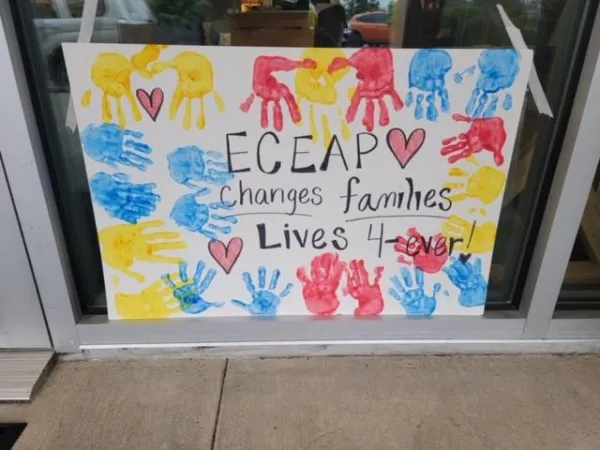 ECEAP
Changes families
Lives 4-ever!